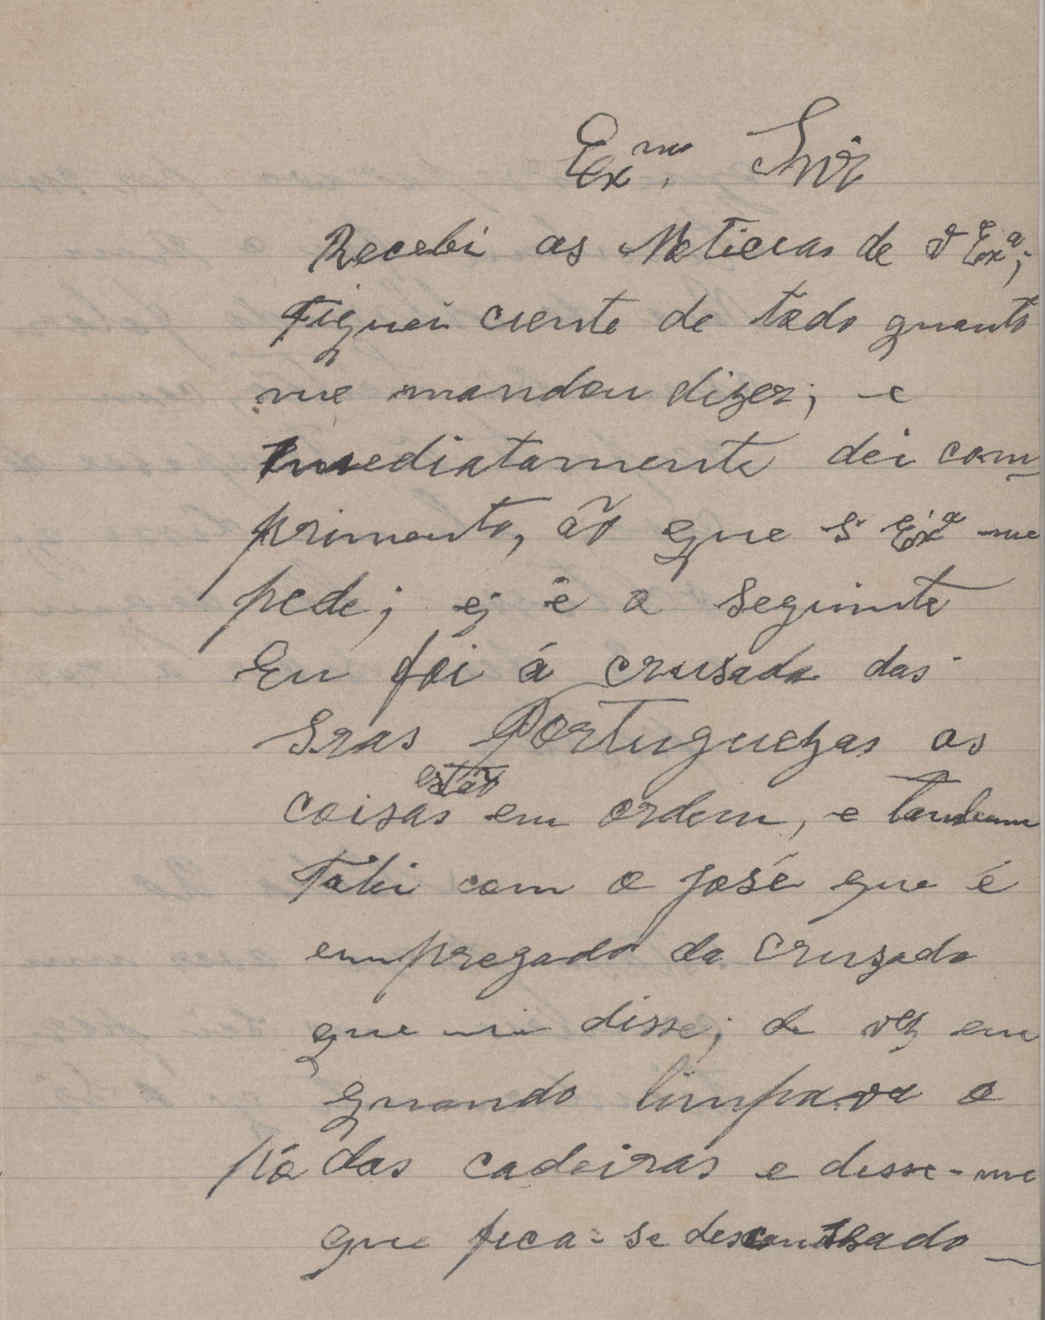 Exmo. Snr
Recebi as Noticias de V Exª;
Fiquei ciente de todo quanto
me mandou dizer; e
Immediatamente dei com
primento, áo que S Exª me
pede; ej é o seguinte
Eu foi á crusada das
Sras Portuguezas as
coisas estão em ordem, e tambem
Falei com o José que é
empregado da Cruzada
que mi disse; de vez em
quando limpava o
pó das cadeiras e disse-me
que fica-se descansado